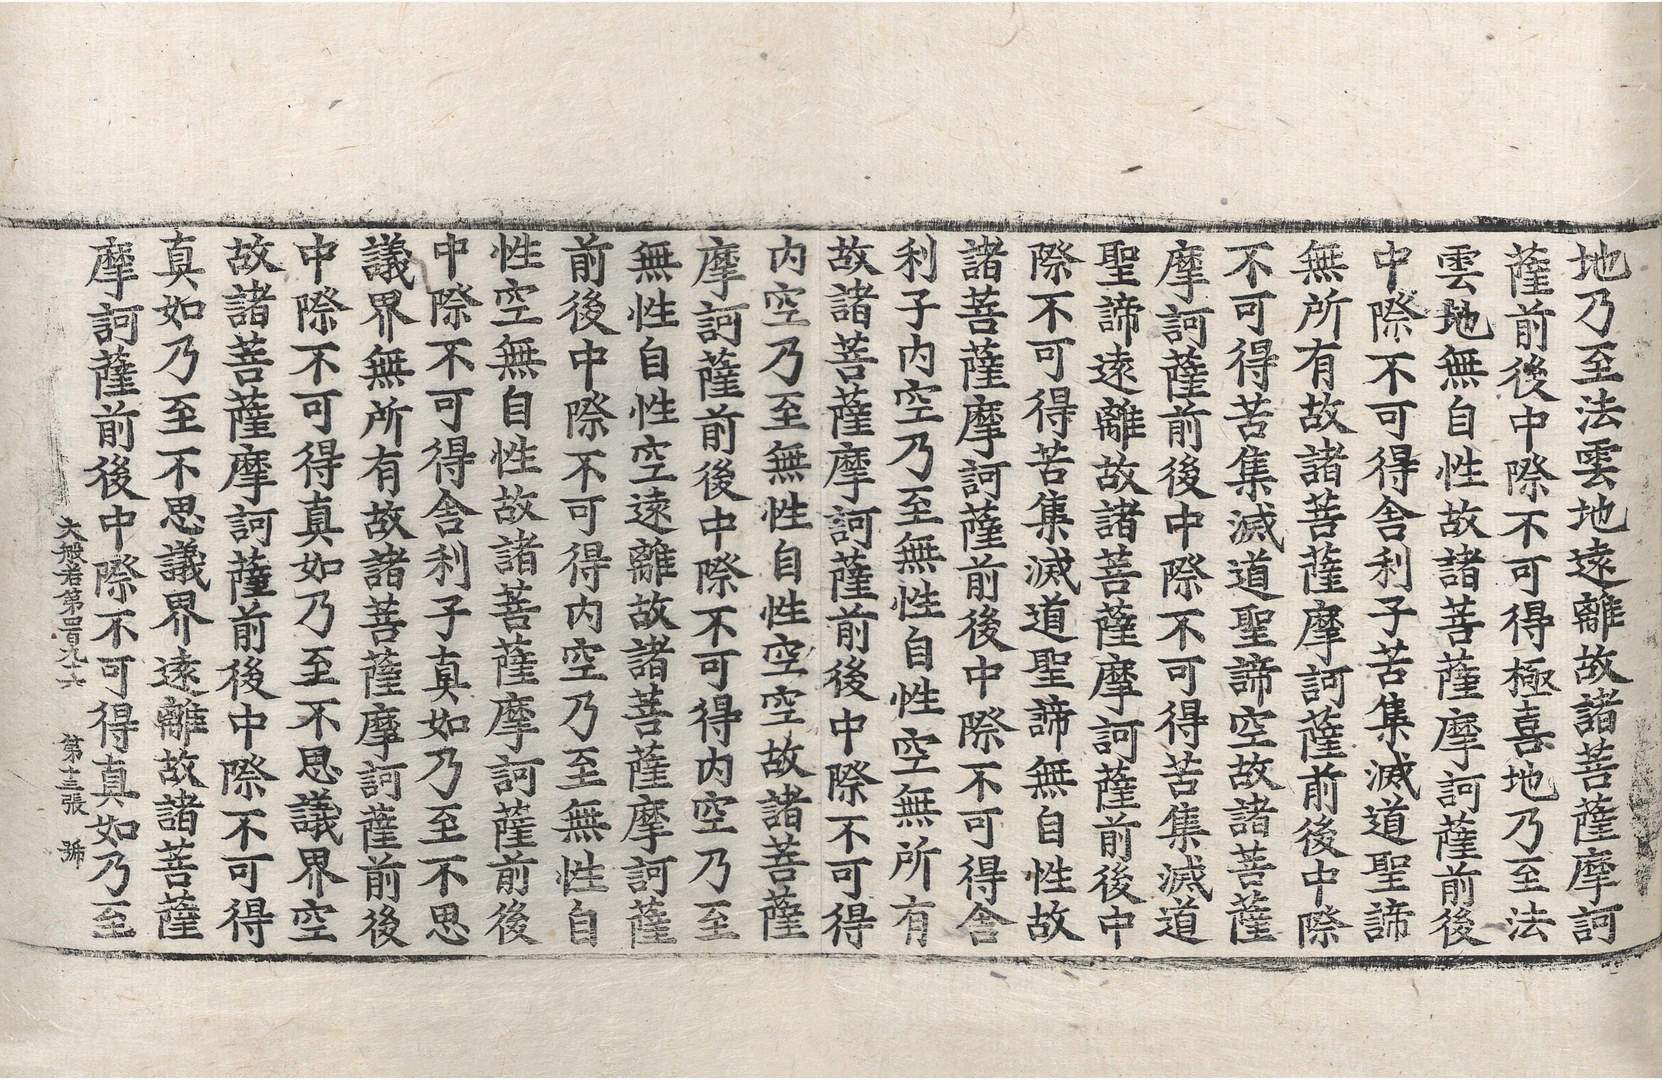 地乃至法雲地遠離故諸菩薩摩訶
薩前後中際不可得極喜地乃至法
雲地無自性故諸菩薩摩訶薩前後
中際不可得舍利子苦集滅道聖諦
無所有故諸菩薩摩訶薩前後中際
不可得苦集滅道聖諦空故諸菩薩
摩訶薩前後中際不可得苦集滅道
聖諦遠離故諸菩薩摩訶薩前後中
際不可得苦集滅道聖諦無自性故
諸菩薩摩訶薩前後中際不可得舍
利子内空乃至無性自性空無所有
故諸菩薩摩訶薩前後中際不可得
内空乃至無性自性空空故諸菩薩
摩訶薩前後中際不可得内空乃至
無性自性空遠離故諸菩薩摩訶薩
前後中際不可得内空乃至無性自
性空無自性故諸菩薩摩訶薩前後
中際不可得舍利子真如乃至不思
議界無所有故諸菩薩摩訶薩前後
中際不可得真如乃至不思議界空
故諸菩薩摩訶薩前後中際不可得
真如乃至不思議界遠離故諸菩薩
摩訶薩前後中際不可得真如乃至
大般若第四百九十六 第十三張 號